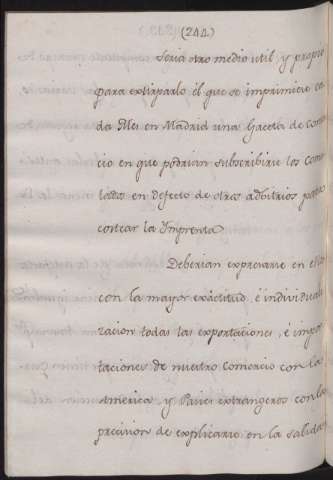 (244.)
Seria otro medio util y propio
para extirparlo el que se imprimiese ca-
da Mes en Madrid una Gaceta de Comer-
cio en que podrian subscribirse los Consu-
lados en defecto de otros adbitrios para
costear la Imprenta.
Deberian expresarse en ella
con la mayor exâctitud, é individuali-
zacion todas las exportaciones, é impor-
taciones de nuestro Comercio con la
America, y Paises extrangeros con la
precision de explicarse en la salida